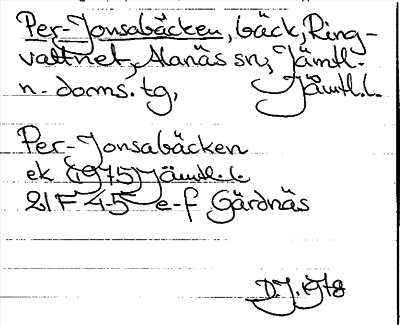 Per-Jonsabäcken, bäck, Ring-
vattnet, Alanäs sn, Jämtl.
n. doms. tg, Jämtl.l.
Per-Jonsabäcken
ek (1975) Jämtl.l.
21F 4-5 e-f Gärdnäs
D.J. 1978